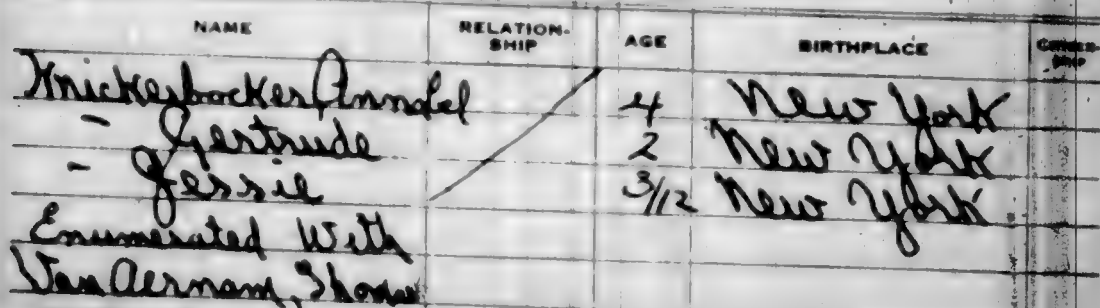 NAME RELATION-SHIP AGE BIRTHPLACE CITIZEN-SHIP
Knickerbocker Annabel 4 New York
- Gertrude 2 New York
- Jessie 3/12 New York
Enumerated With
Van Aernam, Thomas